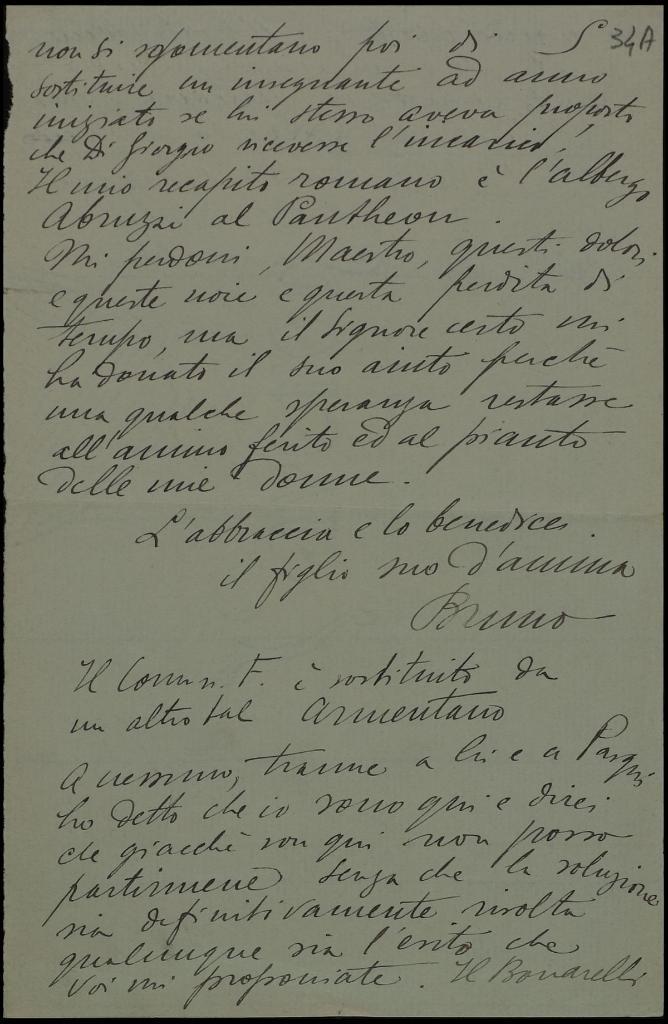 34A
non si sgomentano poi di
sostituire un insegnante ad anno
iniziato se lui stesso aveva proposto
che Di Giorgio ricevesse l'incarico.
Il mio recapito romano è l'albergo
Abruzzi al Pantheon.
Mi perdoni, Maestro, questi dolori
e queste noie e questa perdita di
tempo, ma il Signore certo mi
ha donato il suo aiuto perchè
una qualche speranza restasse
all'animo ferito ed al pianto
delle mie donne.
L'abbraccia e lo benedice
il figlio suo d'anima
Bruno
Il Comm. F. è sostituito da
un altro tal Armentano
A nessuno, tranne a lui e a
ho detto che io sono qui e direi
che giacchè son qui non posso
partirmene senza che la soluzione
sia definitivamente risolta
qualunque sia l'esito che
voi mi proponiate. Il Bonarelli